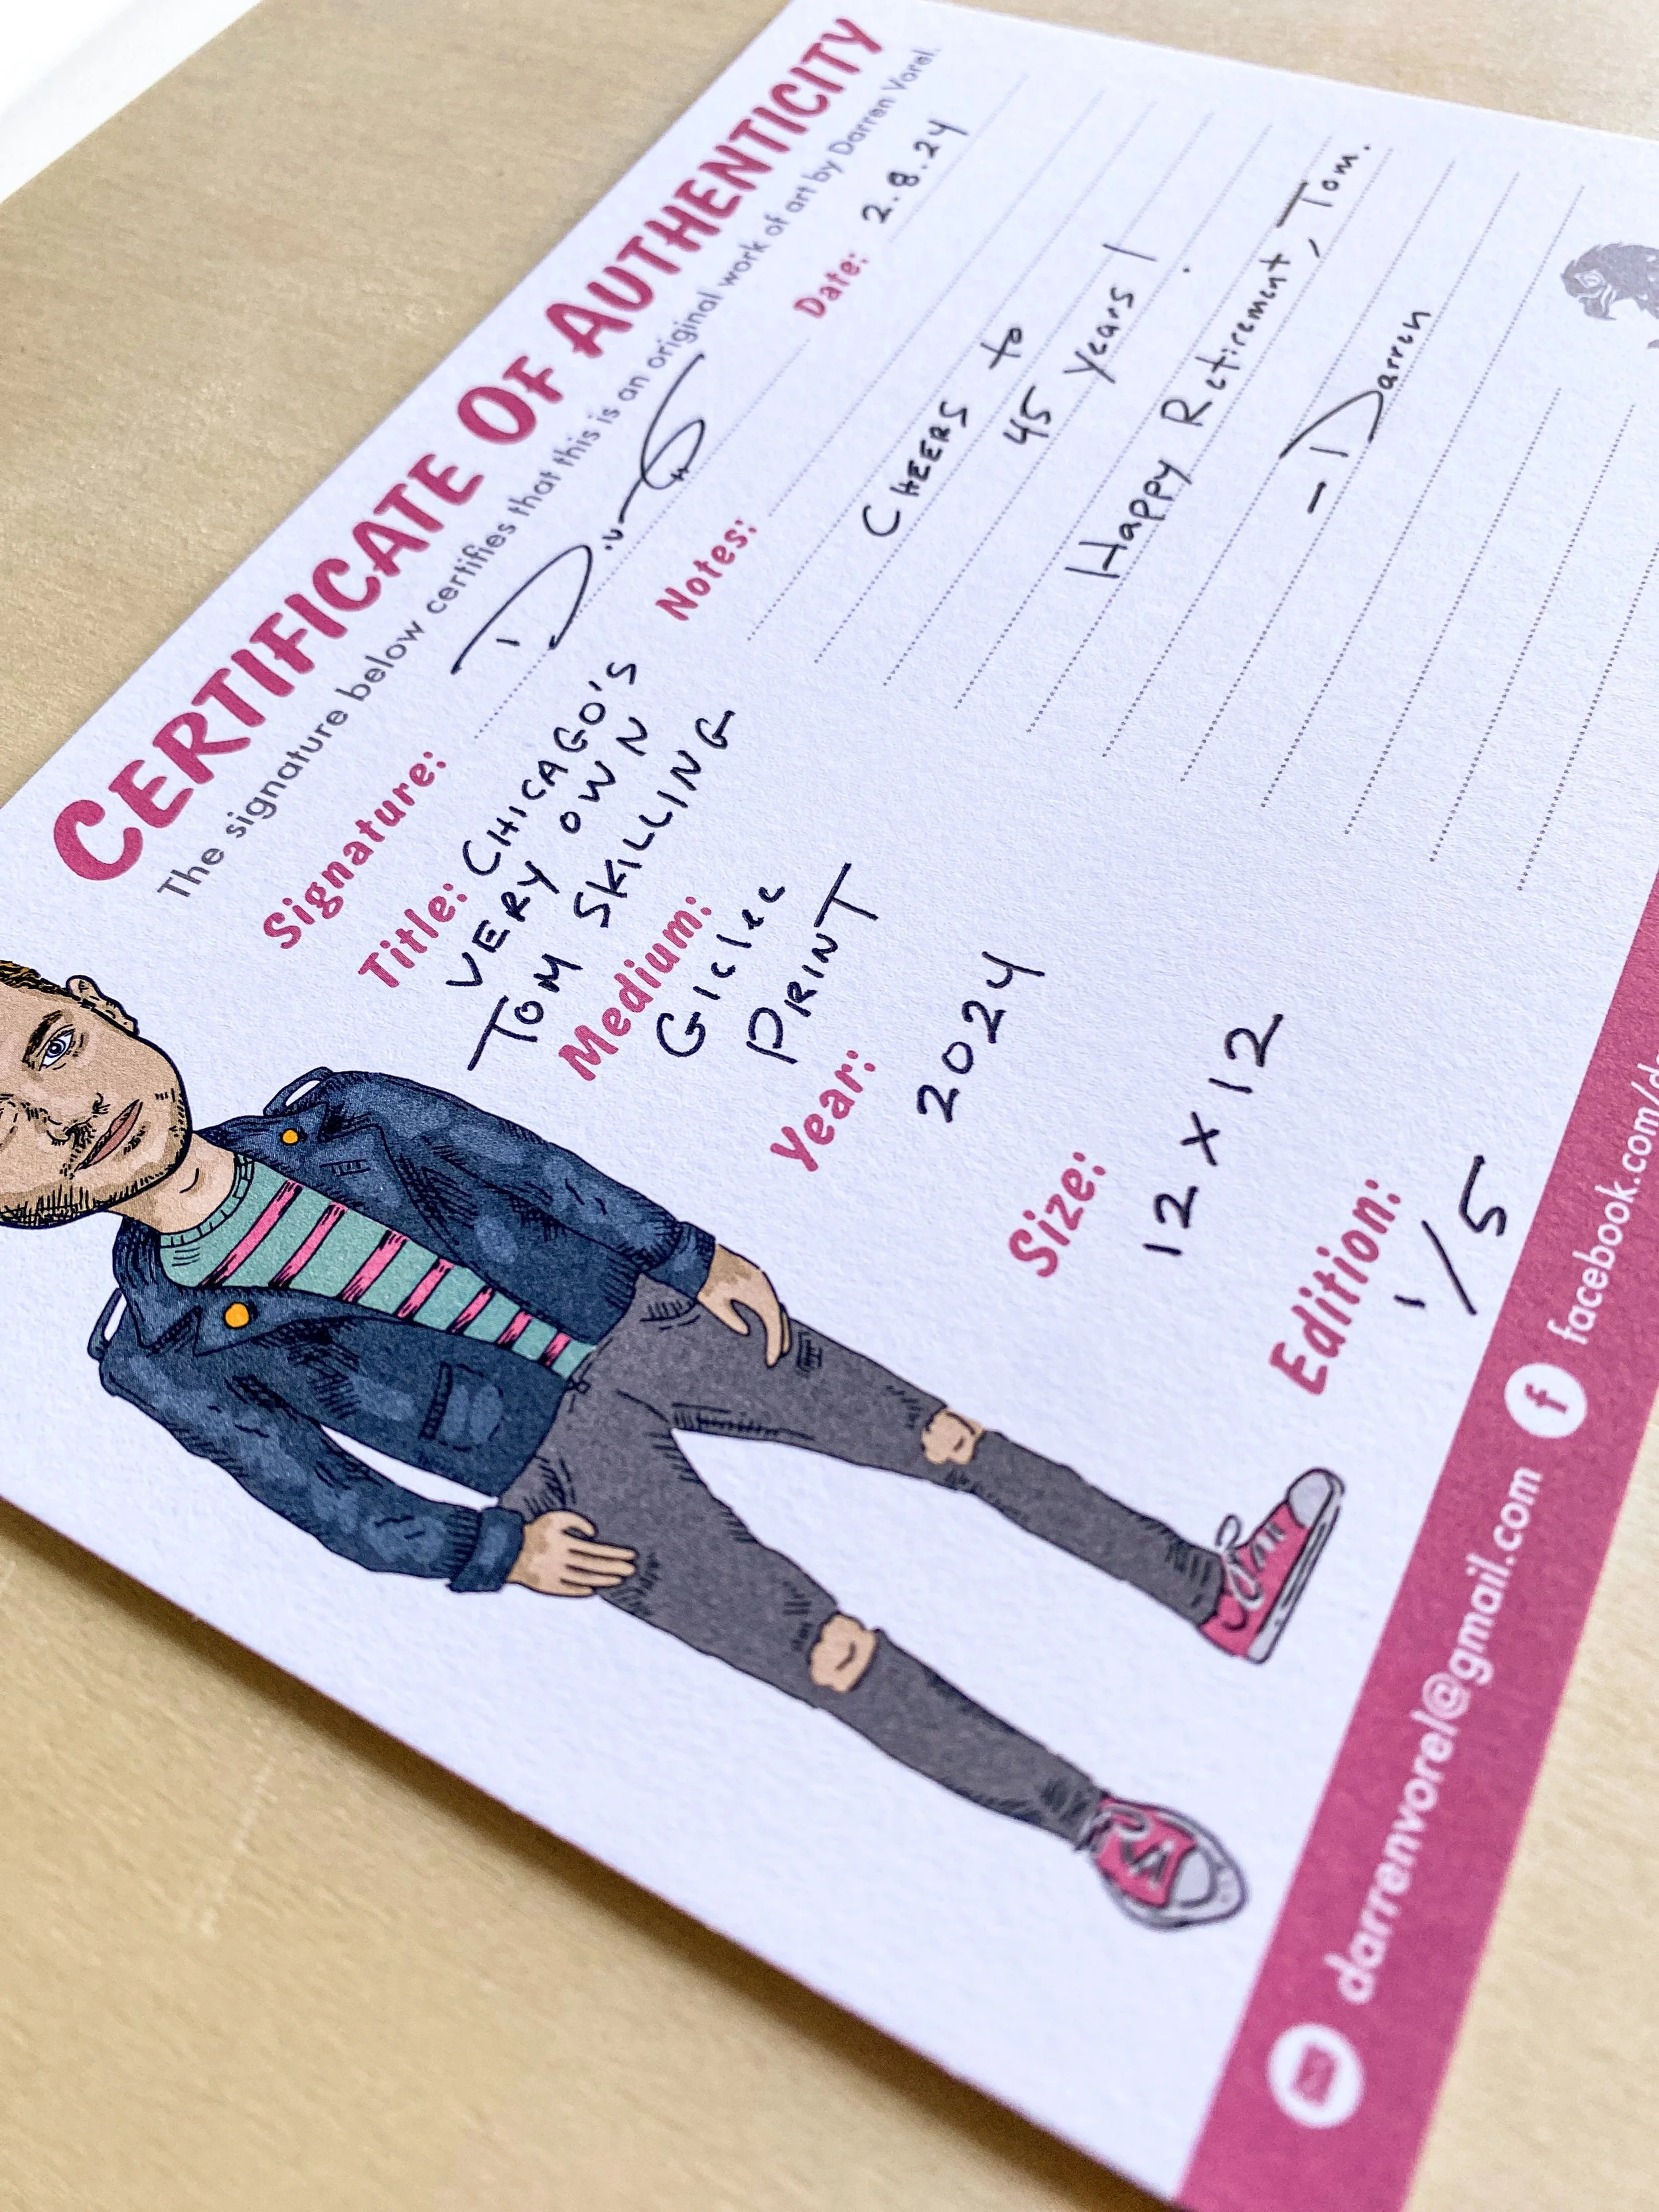 CERTIFICATE OF AUTHENTICITY
The signature below certifies that this is an original work of art by Darren Vorel.
Signature:
Date: 2.8.24
Title: CHICAGO'S
VERY OWN
TOM SKILLING
Medium:
Giclee
PRINT
Year:
2024
Size:
12 x 12
Edition:
1/5
Notes:
CHEERS to
45 years!
Happy Retirement, Tom.
- Darren
darrenvorel@gmail.com
facebook.com/da